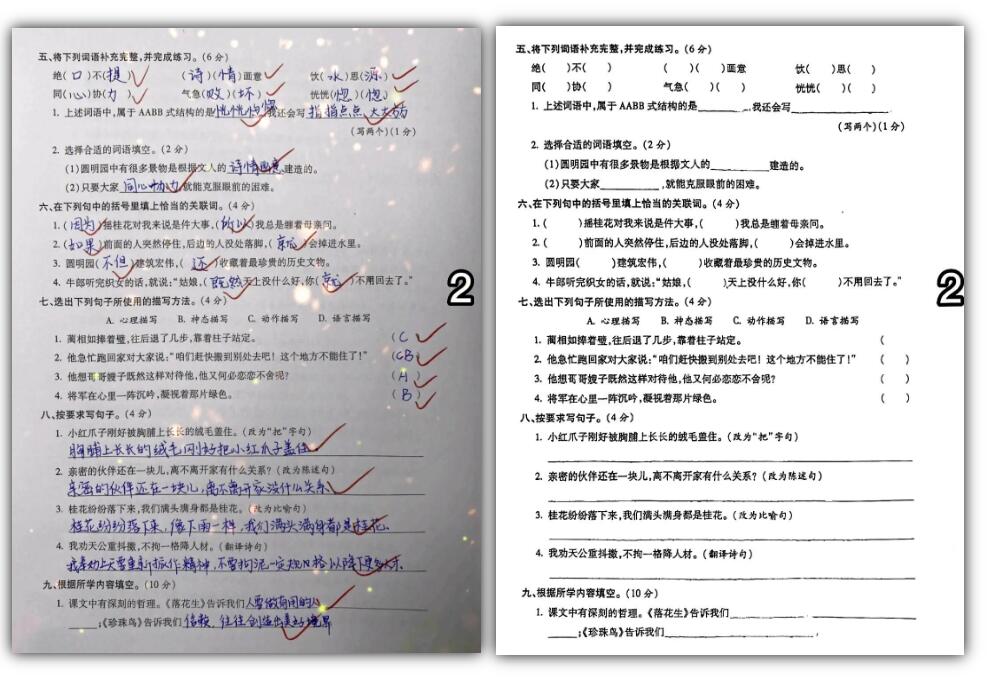 五、将下列词语补充完整,并完成练习。(6分)
绝(口)不(提) (诗)(情)画意 饮(水)思(源)
同(心)协(力) 气急(败)(坏) 恍恍(惚)(惚)
1. 上述词语中,属于AABB式结构的是恍恍惚惚,我还会写指指点点、大大方方
(写两个)(1分)
2. 选择合适的词语填空。(2分)
(1)圆明园中有很多景物是根据文人的诗情画意建造的。
(2)只要大家同心协力,就能克服眼前的困难。
六、在下列句中的括号里填上恰当的关联词。(4分)
1. (因为)摇桂花对我来说是件大事,(所以)我总是缠着母亲问。
2. (如果)前面的人突然停住,后边的人没处落脚,(就)会掉进水里。
3. 圆明园(不但)建筑宏伟,(还)收藏着最珍贵的历史文物。
4. 牛郎听完织女的话,就说:“姑娘,(既然)天上没什么好,你(就)不用回去了。”
七、选出下列句子所使用的描写方法。(4分)
A. 心理描写 B. 神态描写 C. 动作描写 D. 语言描写
1. 蔺相如捧着璧,往后退了几步,靠着柱子站定。 (C)
2. 他急忙跑回家对大家说:“咱们赶快搬到别处去吧!这个地方不能住了!”
3. 他想哥哥嫂子既然这样对待他,他又何必恋恋不舍呢? (A)
4. 将军在心里一阵沉吟,凝视着那片绿色。 (B)
八、按要求写句子。(4分)
1. 小红爪子刚好被胸脯上长长的绒毛盖住。(改为“把”字句)
胸脯上长长的绒毛刚好把小红爪子盖住。
2. 亲密的伙伴还在一块儿,离不离开家有什么关系?(改为陈述句)
亲密的伙伴还在一块儿,离不离开家没什么关系。
3. 桂花纷纷落下来,我们满头满身都是桂花。(改为比喻句)
桂花纷纷落下来,像下雨一样,我们满头满身都是桂花。
4. 我劝天公重抖擞,不拘一格降人材。(翻译诗句)
我奉劝上天要重新振作精神,不要拘泥一定规格以降下更多人才。
九、根据所学内容填空。(10分)
1. 课文中有深刻的哲理。《落花生》告诉我们人要做有用的人
;《珍珠鸟》告诉我们信赖,往往创造出美好境界
2
五、将下列词语补充完整,并完成练习。(6分)
绝( )不( ) ( )( )画意 饮( )思( )
同( )协( ) 气急( )( ) 恍恍( )( )
1. 上述词语中,属于AABB式结构的是________,我还会写________________
(写两个)(1分)
2. 选择合适的词语填空。(2分)
(1)圆明园中有很多景物是根据文人的________建造的。
(2)只要大家________,就能克服眼前的困难。
六、在下列句中的括号里填上恰当的关联词。(4分)
1. ( )摇桂花对我来说是件大事,( )我总是缠着母亲问。
2. ( )前面的人突然停住,后边的人没处落脚,( )会掉进水里。
3. 圆明园( )建筑宏伟,( )收藏着最珍贵的历史文物。
4. 牛郎听完织女的话,就说:“姑娘,( )天上没什么好,你( )不用回去了。”
七、选出下列句子所使用的描写方法。(4分)
A. 心理描写 B. 神态描写 C. 动作描写 D. 语言描写
1. 蔺相如捧着璧,往后退了几步,靠着柱子站定。 (
2. 他急忙跑回家对大家说:“咱们赶快搬到别处去吧!这个地方不能住了!” ( )
3. 他想哥哥嫂子既然这样对待他,他又何必恋恋不舍呢? ( )
4. 将军在心里一阵沉吟,凝视着那片绿色。 ( )
八、按要求写句子。(4分)
1. 小红爪子刚好被胸脯上长长的绒毛盖住。(改为“把”字句)
2. 亲密的伙伴还在一块儿,离不离开家有什么关系?(改为陈述句)
3. 桂花纷纷落下来,我们满头满身都是桂花。(改为比喻句)
4. 我劝天公重抖擞,不拘一格降人材。(翻译诗句)
九、根据所学内容填空。(10分)
1. 课文中有深刻的哲理。《落花生》告诉我们________
____;《珍珠鸟》告诉我们________________,
2